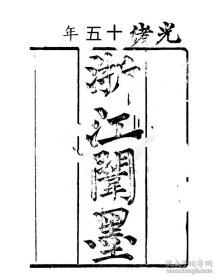 光緒十五年
浙江闈墨